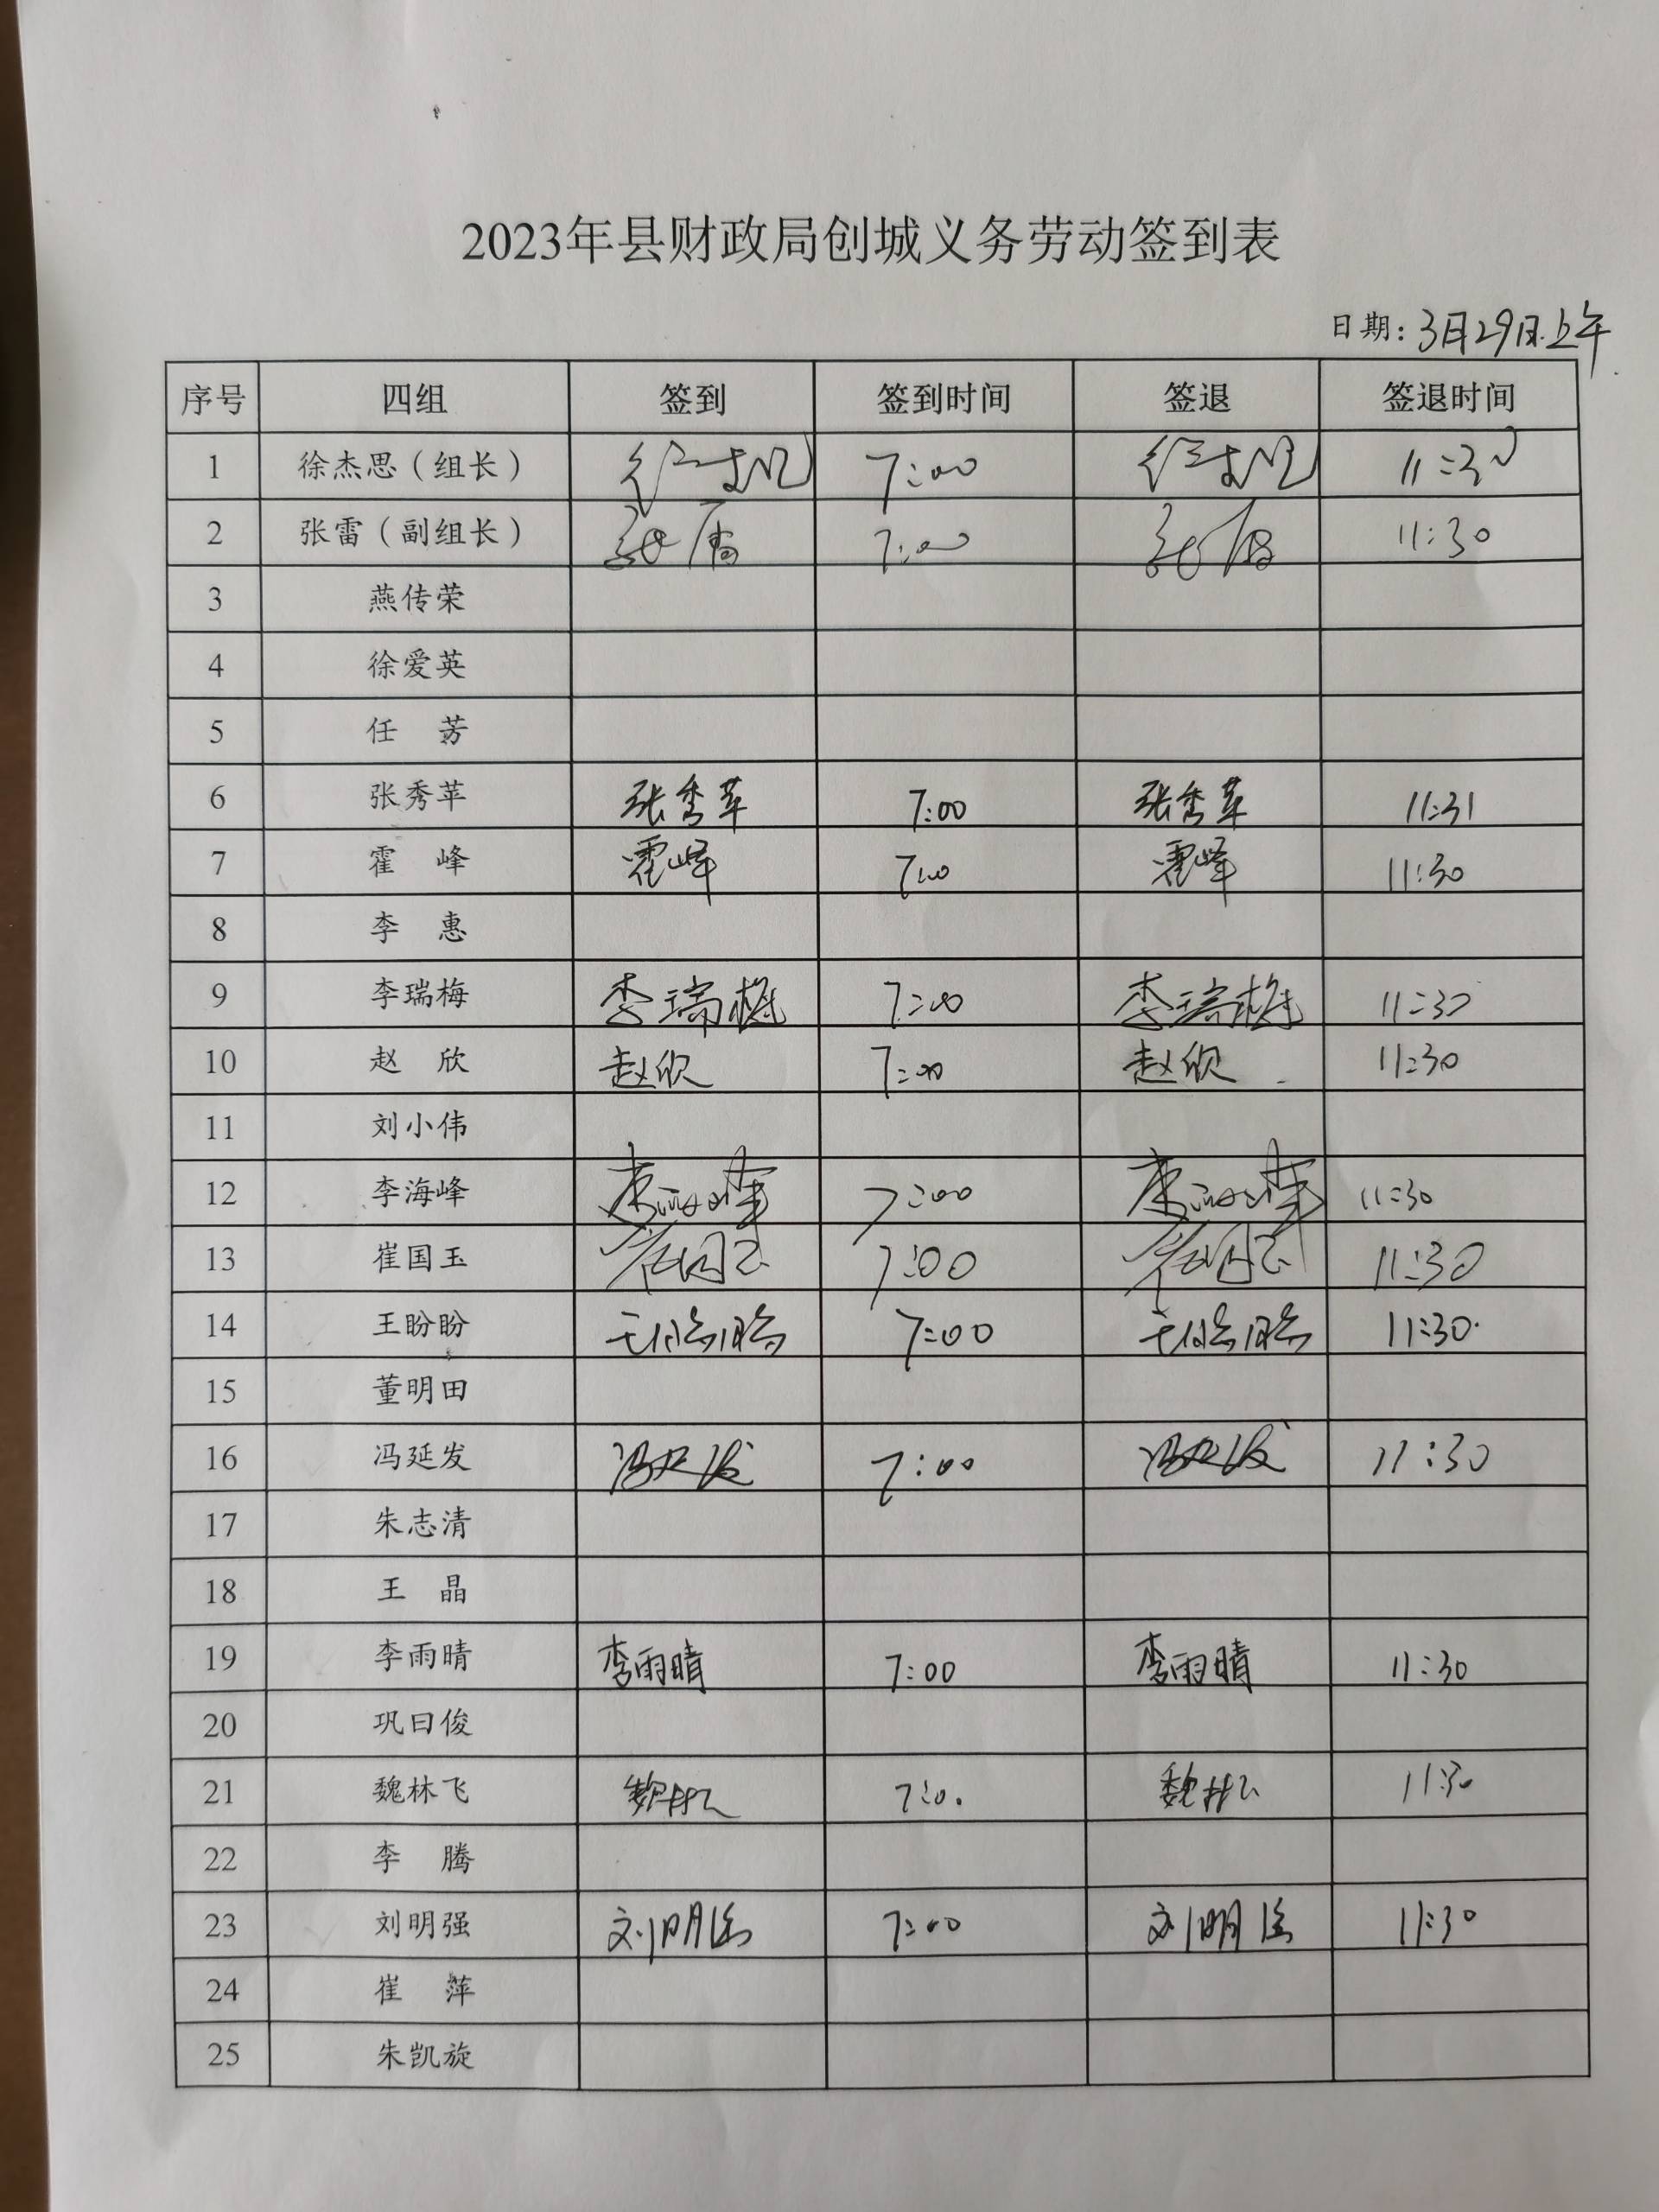 2023年县财政局创城义务劳动签到表
日期: 3月29日.上午
序号 四组 签到 签到时间 签退 签退时间
1 徐杰思（组长） 7:00 11:30
2 张雷（副组长） 张雷 7:00 张雷 11:30
3 燕传荣
4 徐爱英
5 任 芳
6 张秀苹 张秀苹 7:00 张秀苹 11:31
7 霍 峰 霍峰 7:00 霍峰 11:30
8 李 惠
9 李瑞梅 李瑞梅 7:00 李瑞梅 11:30
10 赵 欣 赵欣 7:00 赵欣 11:30
11 刘小伟
12 李海峰 李海峰 7:00 李海峰 11:30
13 崔国玉 崔国玉 7:00 崔国玉 11:30
14 王盼盼 王盼盼 7:00 王盼盼 11:30
15 董明田
16 冯延发 冯延发 7:00 冯延发 11:30
17 朱志清
18 王 晶
19 李雨晴 李雨晴 7:00 李雨晴 11:30
20 巩曰俊
21 魏林飞 魏林飞 7:00 魏林飞 11:30
22 李 腾
23 刘明强 刘明强 7:00 刘明强 11:30
24 崔 萍
25 朱凯旋